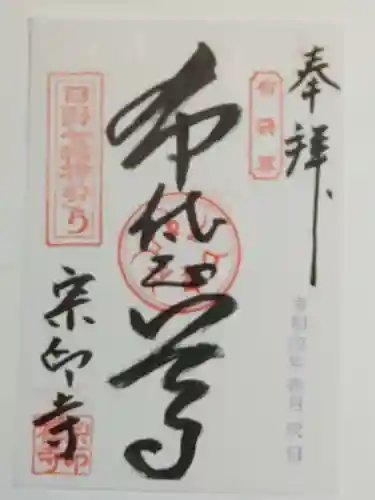 奉拝
布袋尊
布袋尊
日野七福神めぐり
宗印寺